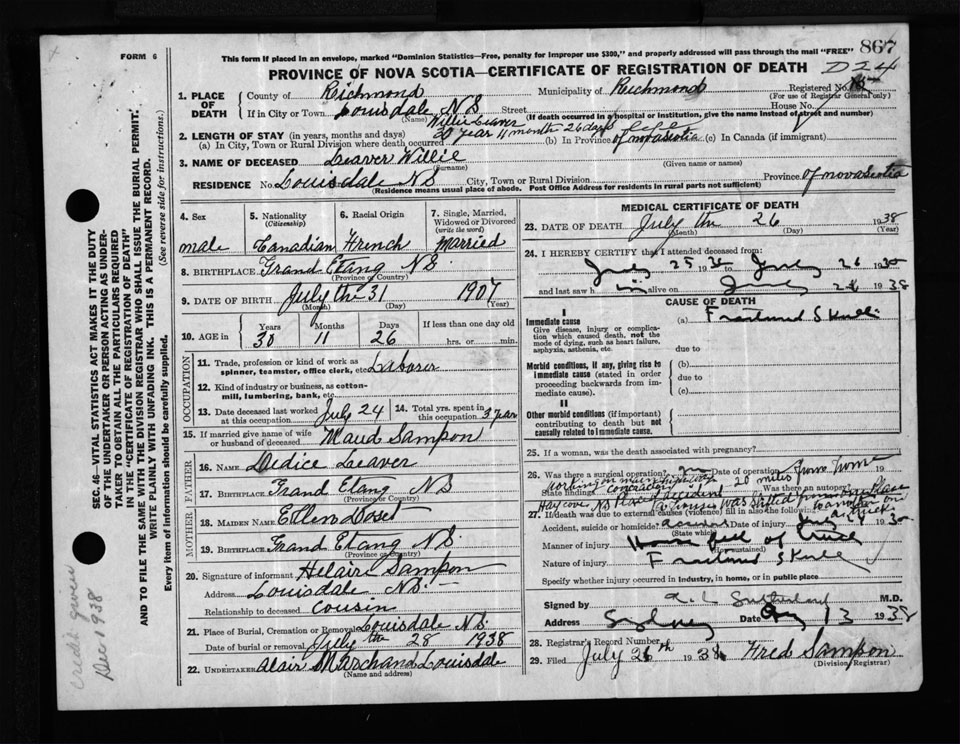 FORM 6
This form if placed in an envelope, marked "Dominion Statistics—Free, penalty for improper use $300," and properly addressed will pass through the mail "FREE"
867
D24
PROVINCE OF NOVA SCOTIA—CERTIFICATE OF REGISTRATION OF DEATH
Registered No.
(For use of Registrar General only)
1. PLACE OF DEATH
County of Richmond Municipality of Richmond
If in City or Town Louisdale N S Street House No.
(Name) Willie Leaver (If death occurred in a hospital or institution, give the name instead of street and number)
2. LENGTH OF STAY (in years, months and days) 30 year 11 month 26 days
(a) In City, Town or Rural Division where death occurred (b) In Province of nova scotia (c) In Canada (if immigrant)
3. NAME OF DECEASED Leaver Willie
(Surname) (Given name or names)
RESIDENCE No. Louisdale N S City, Town or Rural Division Province of nova Scotia
(Residence means usual place of abode. Post Office Address for residents in rural parts not sufficient)
4. Sex
male
5. Nationality
(Citizenship)
Canadian
6. Racial Origin
French
7. Single, Married, Widowed or Divorced
(write the word)
Married
8. BIRTHPLACE Grand Etang N S.
(Province or Country)
9. DATE OF BIRTH July the 31 1907
(Month) (Day) (Year)
10. AGE in Years Months Days If less than one day old
30 11 26 hrs. or min.
OCCUPATION
11. Trade, profession or kind of work as spinner, teamster, office clerk, etc. Laborer
12. Kind of industry or business, as cotton-mill, lumbering, bank, etc.
13. Date deceased last worked at this occupation July 24
14. Total yrs. spent in this occupation 3 year
15. If married give name of wife or husband of deceased Maud Sampson
FATHER
16. NAME Dedice Leaver
17. BIRTHPLACE Grand Etang N S
(Province or Country)
MOTHER
18. MAIDEN NAME Ellen Doset
19. BIRTHPLACE Grand Etang N S.
(Province or Country)
20. Signature of informant Helaire Sampson
Address Louisdale N S.
Relationship to deceased cousin
21. Place of Burial, Cremation or Removal Louisdale N S.
Date of burial or removal July the 28 1938
22. Undertaker Alair Marchand Louisdale
(Name and address)
MEDICAL CERTIFICATE OF DEATH
23. DATE OF DEATH July the 26 1938
(Month) (Day) (Year)
24. I HEREBY CERTIFY that I attended deceased from:
July 25 19 to July 26 19
and last saw h im alive on July 1938
CAUSE OF DEATH
I
Immediate cause
Give disease, injury or complication which caused death, not the mode of dying, such as heart failure, asphyxia, asthenia, etc.
(a) Fractured Skull
due to
Morbid conditions, if any, giving rise to immediate cause (stated in order proceeding backwards from immediate cause).
(b)
due to
(c)
II
Other morbid conditions (if important) contributing to death but not causally related to immediate cause.
25. If a woman, was the death associated with pregnancy?
26. Was there a surgical operation? no Date of operation 19
State findings Was there an autopsy?
working on main highway contractor 20 miles from home
Hay cove N S Place of accident
House was shifted from one place to another on a truck
27. If death was due to external causes (violence) fill in also the following:
Accident, suicide or homicide? accident Date of injury July 24 19
(State which)
Manner of injury House fell of truck
(How sustained)
Nature of injury Fractured Skull
Specify whether injury occurred in industry, in home, or in public place
Signed by Sutherland M.D.
Address Sydney Date 13 1938
28. Registrar's Record Number
29. Filed July 26th 1938 Fred Sampson
(Division Registrar)
SEC. 46—VITAL STATISTICS ACT MAKES IT THE DUTY
OF THE UNDERTAKER OR PERSON ACTING AS UNDER-
TAKER TO OBTAIN ALL THE PARTICULARS REQUIRED
IN THE "CERTIFICATE OF REGISTRATION OF DEATH"
AND TO FILE THE SAME WITH THE DIVISION REGISTRAR WHO SHALL ISSUE THE BURIAL PERMIT.
WRITE PLAINLY WITH UNFADING INK. THIS IS A PERMANENT RECORD.
Every item of information should be carefully supplied. (See reverse side for instructions.)
credit given
Dec 1938